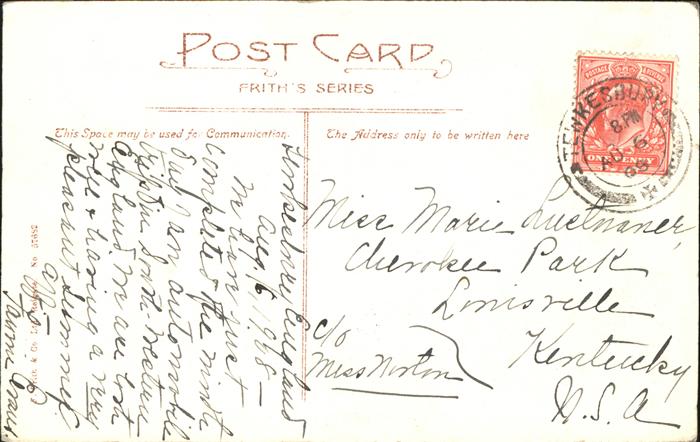 POST CARD
FRITH'S SERIES
This Space may be used for Communication.
The Address only to be written here
POSTAGE REVENUE
ONE PENNY
TEWKESBURY
8 PM
AU 6
08
England
Aug. 6 1908 —
We have just
completed the ninth
day of an automobile
trip in South Western
England We are both
well & having a very
pleasant summer
Miss Marie
Cherokee Park
Louisville
Kentucky
U.S.A
c/o
Miss Norton
No 57682